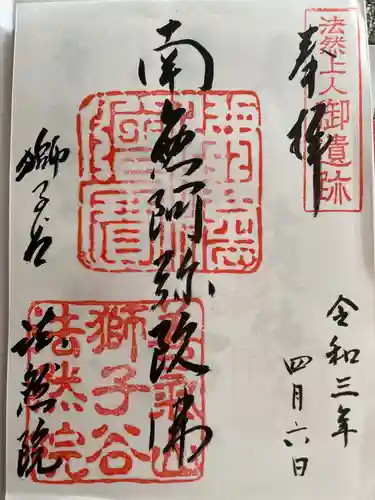 奉拝
法然上人御遺跡
令和三年
四月六日
南無阿弥陀佛
獅子谷
法然院
獅子谷
法然院